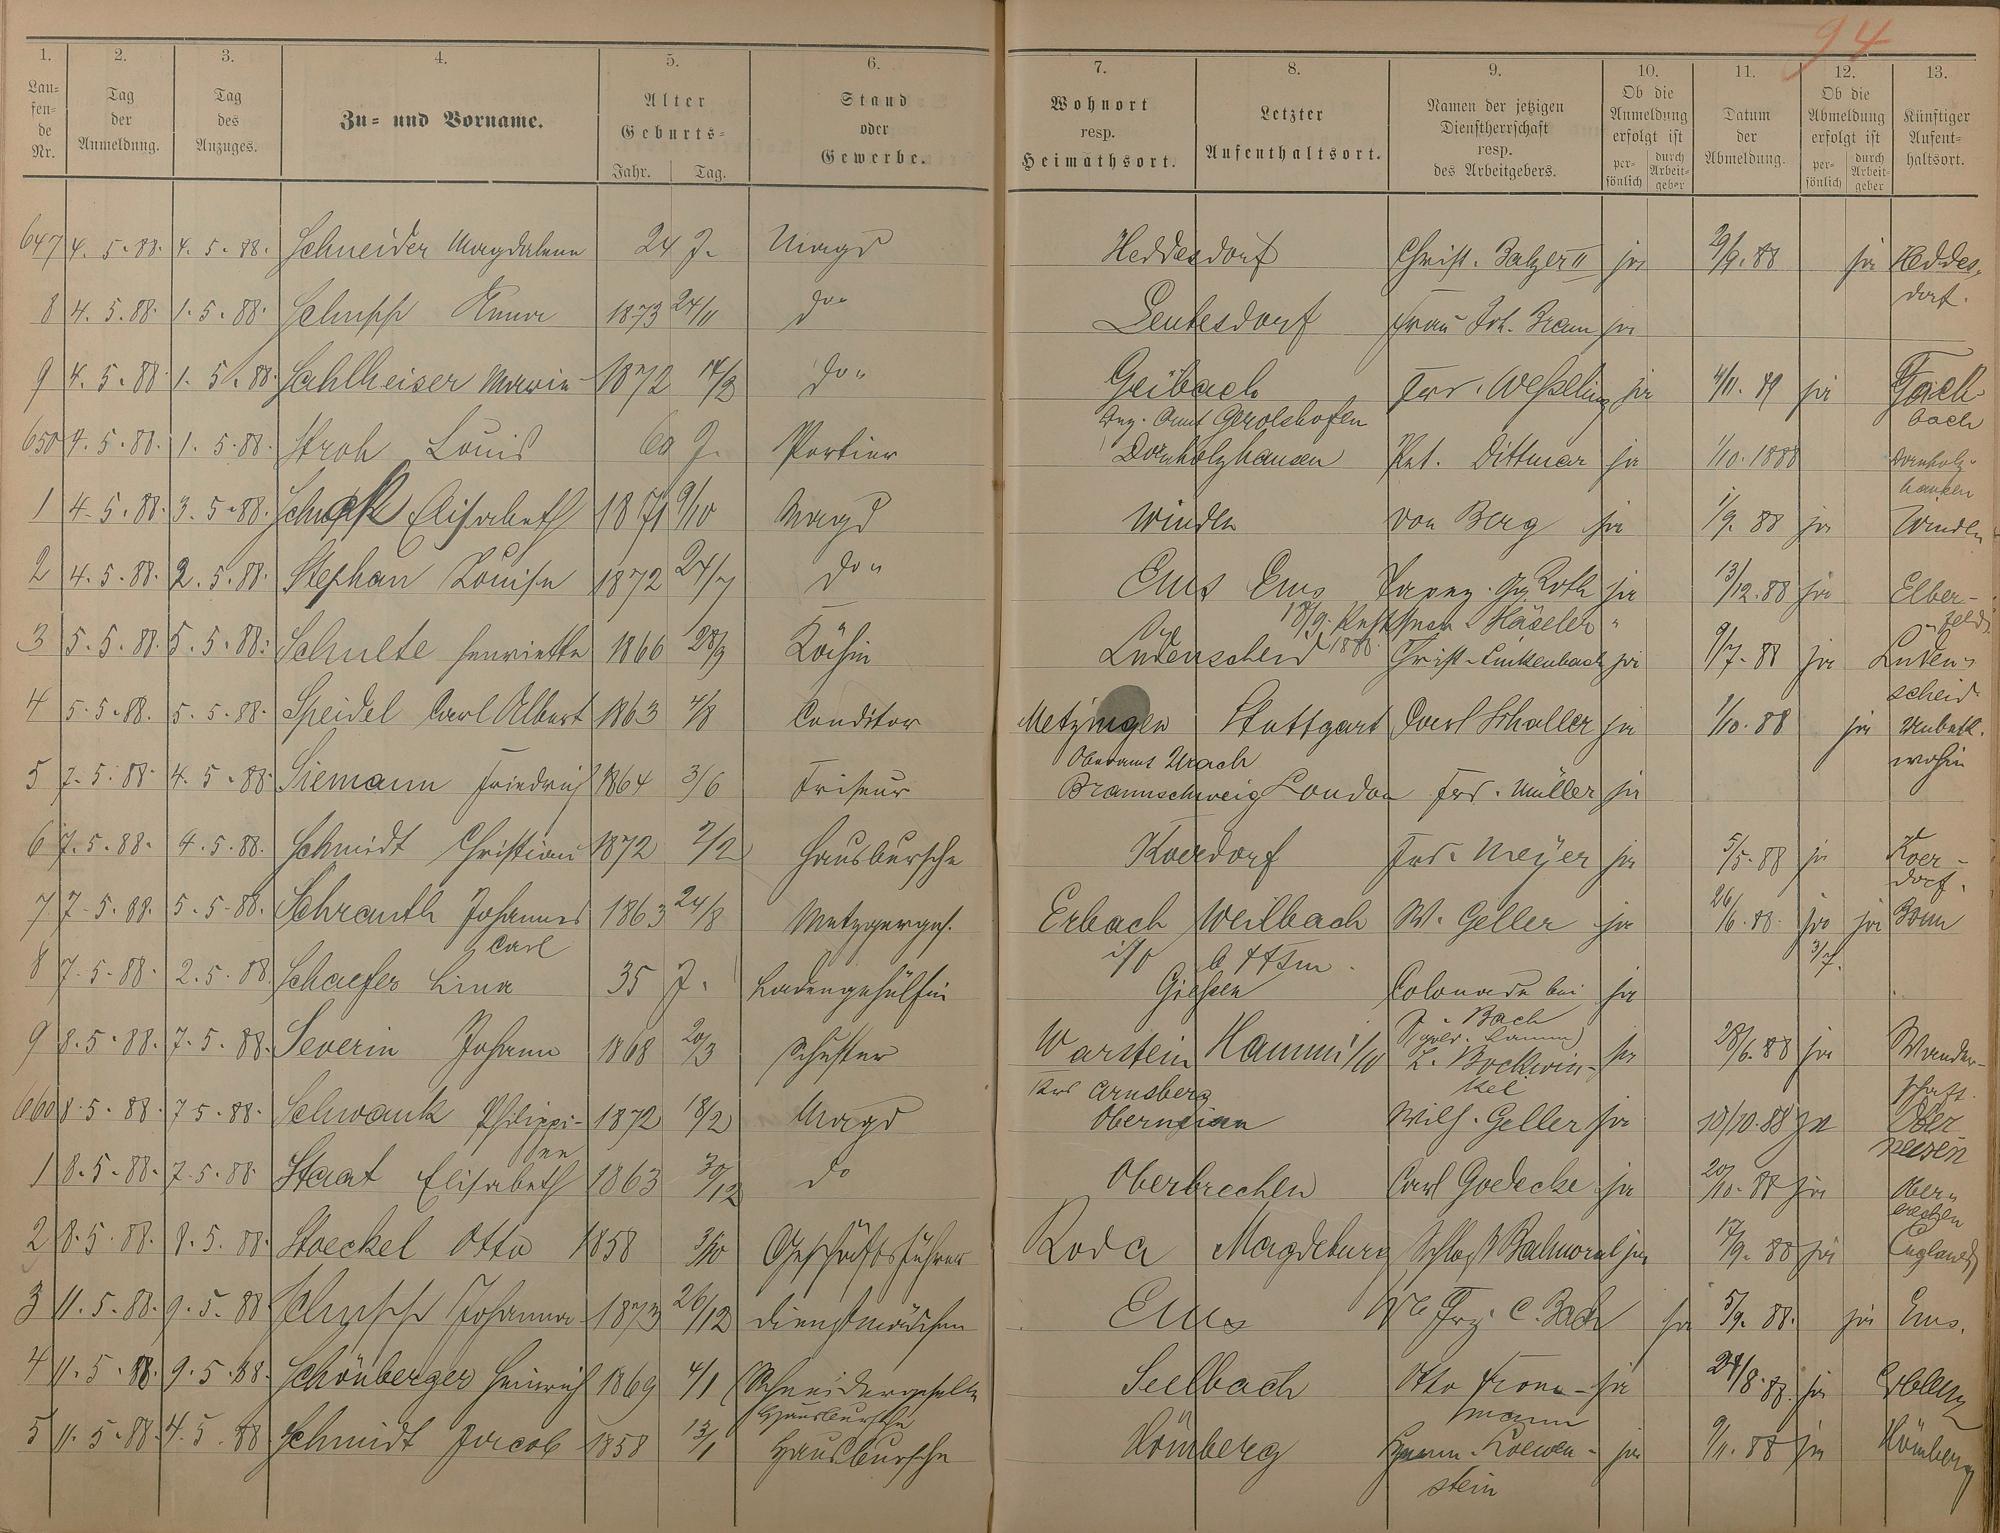 94
1. 2. 3. 4. 5. 6. 7. 8. 9. 10. 11. 12. 13.
Laufende Nr. Tag der Anmeldung. Tag des Anzuges. Zu- und Vorname. Alter Geburts- Jahr. Tag. Stand oder Gewerbe. Wohnort resp. Heimathsort. Letzter Aufenthaltsort. Namen der jetzigen Dienstherrschaft resp. des Arbeitgebers. Ob die Anmeldung erfolgt ist persönlich durch Arbeitgeber Datum der Abmeldung. Ob die Abmeldung erfolgt ist persönlich durch Arbeitgeber Künftiger Aufenthaltsort.
647 4. 5. 88. 4. 5. 88. Schneider Magdalena 24 J. Magd Heddesdorf Christ. Balzer II ja 29/9. 88 ja Heddesdorf.
8 4. 5. 88. 1. 5. 88. Schupp Anna 1873 24/11 do Leutesdorf Frau Joh. Bram ja
9 4. 5. 88. 1. 5. 88. Sahlheiser Maria 1872 Geibach Frd. Weßling ja 4/11. ja Fachbach
Amt Gerolshofen
650 4. 5. 88. 1. 5. 88. Stroh Louis 60 J. Portier Dornholzhausen Dittmar ja 1/10. 1888 Dornholzhausen
1 4. 5. 88. 3. 5. 88. Elisabeth 1871 9/10 Magd Winden von Berg ja 1/9. 88 ja Winden
2 4. 5. 88. 2. 5. 88. Stephan Louise 1872 24/7 do Ems Ems Roth ja 13/12. 88 ja Elberfeld
Häseler "
3 5. 5. 88. 5. 5. 88. Schulte Henriette 1866 Köchin Lüdenscheid 1888. Christ. Linkenbach ja 9/7. 88 ja Lüdenscheid
4 5. 5. 88. 5. 5. 88. Speidel Carl Albert 1863 4/8 Conditor Metzingen Stuttgart Carl Schaller ja 1/10. 88 ja Unbek. wohin
Oberamt Urach
5 7. 5. 88. 4. 5. 88. Siemann Friedrich 1864 3/6 Friseur Braunschweig London Frd. Müller ja
6 7. 5. 88. 4. 5. 88. Schmidt Christian 1872 2/2 Hausbursche Koerdorf Frd. Meyer ja 5/5. 88 ja Koerdorf.
7 7. 5. 88. 5. 5. 88. Schrauth Johannes Carl 1863 24/8 Metzgerges. Erbach Weilbach W. Geller ja 26/6. 88. ja ja Bonn
8 7. 5. 88. 2. 5. 88. Schaefer Lina 35 J. Ladengehülfin Gießen Colonade bei Bach ja
9 8. 5. 88. 7. 5. 88. Severin Johann 1868 20/3 Schuster Warstein Hamm i/W L. Bockwinkel ja 28/6. 88 ja Wanderschaft.
Krs Arnsberg
660 8. 5. 88. 7. 5. 88. Schwank Philippinen 1872 18/2 Magd Oberneisen Wilh. Geller ja 10/10. 88 ja Oberneisen
1 8. 5. 88. 7. 5. 88 Staat Elisabeth 1863 30/12 do Oberbrechen Carl Goedecke ja 20/10. 88 ja Oberbrechen
2 8. 5. 88. 8. 5. 88. Stoeckel Otto 1858 3/10 Geschäftsführer Roda Magdeburg Schloß Balmoral ja 17/9. 88 ja England
3 11. 5. 88. 9. 5. 88 Schupp Johanna 1873 26/12 Dienstmädchen Ems Frz. C. Bach ja 5/9. 88. ja Ems.
4 11. 5. 88. 9. 5. 88. Schönberger Heinrich 1869 4/1 Schneidergeselle Seelbach Otto Kronmann ja 24/8. 88. ja Coblenz
Hausbursche
5 11. 5. 88. 4. 5. 88 Schmidt Jacob 1858 13/1 Hausbursche Hömberg Loewenstein ja 9/11. 88 ja Hömberg